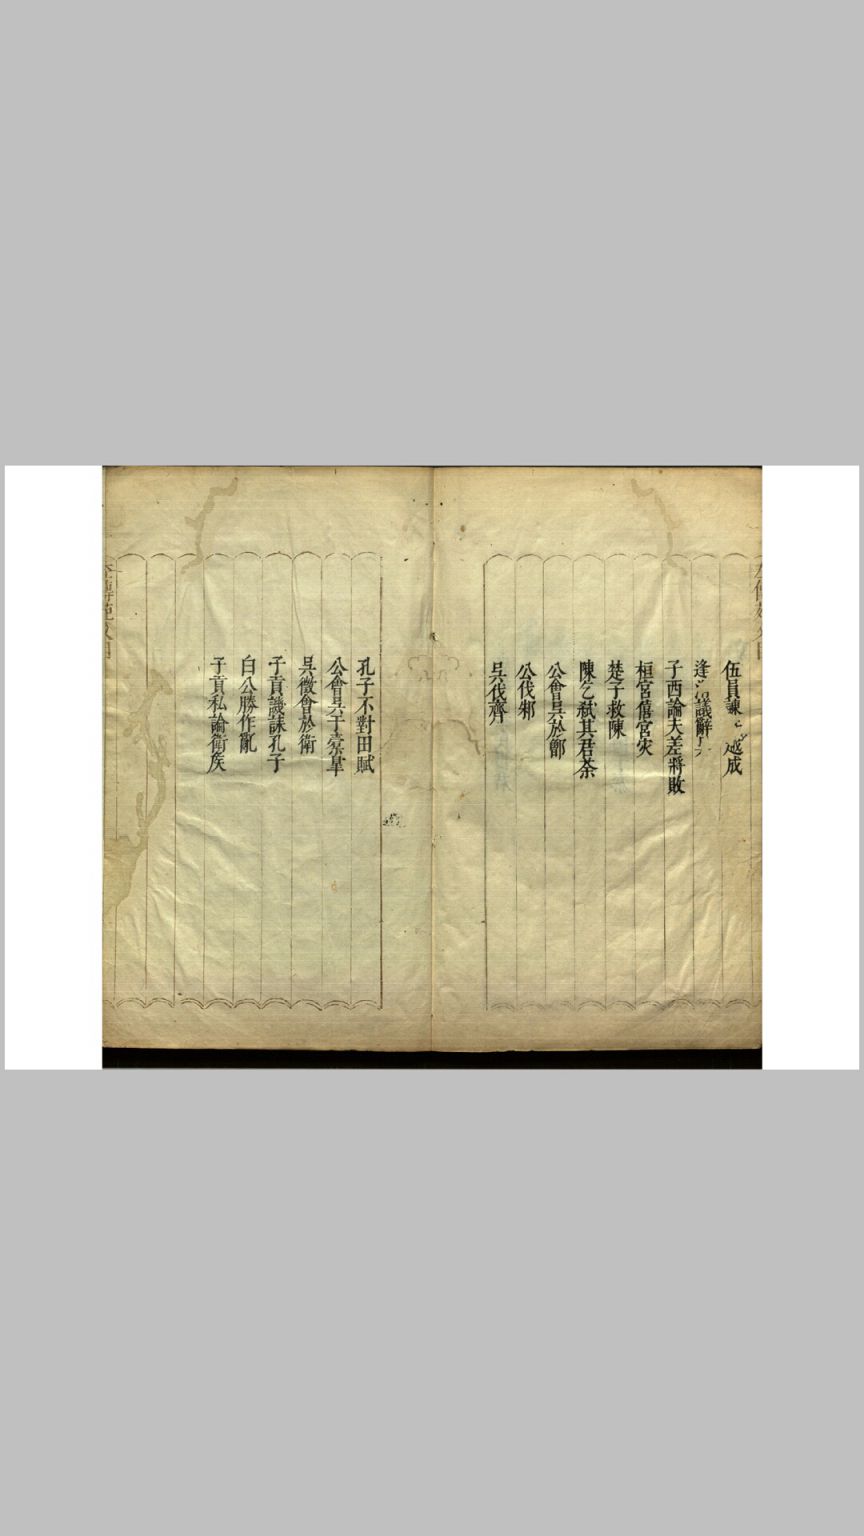 伍員諫 越成
逢 議辭
子西論夫差將敗
桓宮僖宮灾
楚子救陳
陳乞弑其君荼
公會吳於鄫
公伐邾
吳伐齊
孔子不對田賦
公會吳于橐皐
吳徵會於衛
子貢議誄孔子
白公勝作亂
子貢私論衛侯